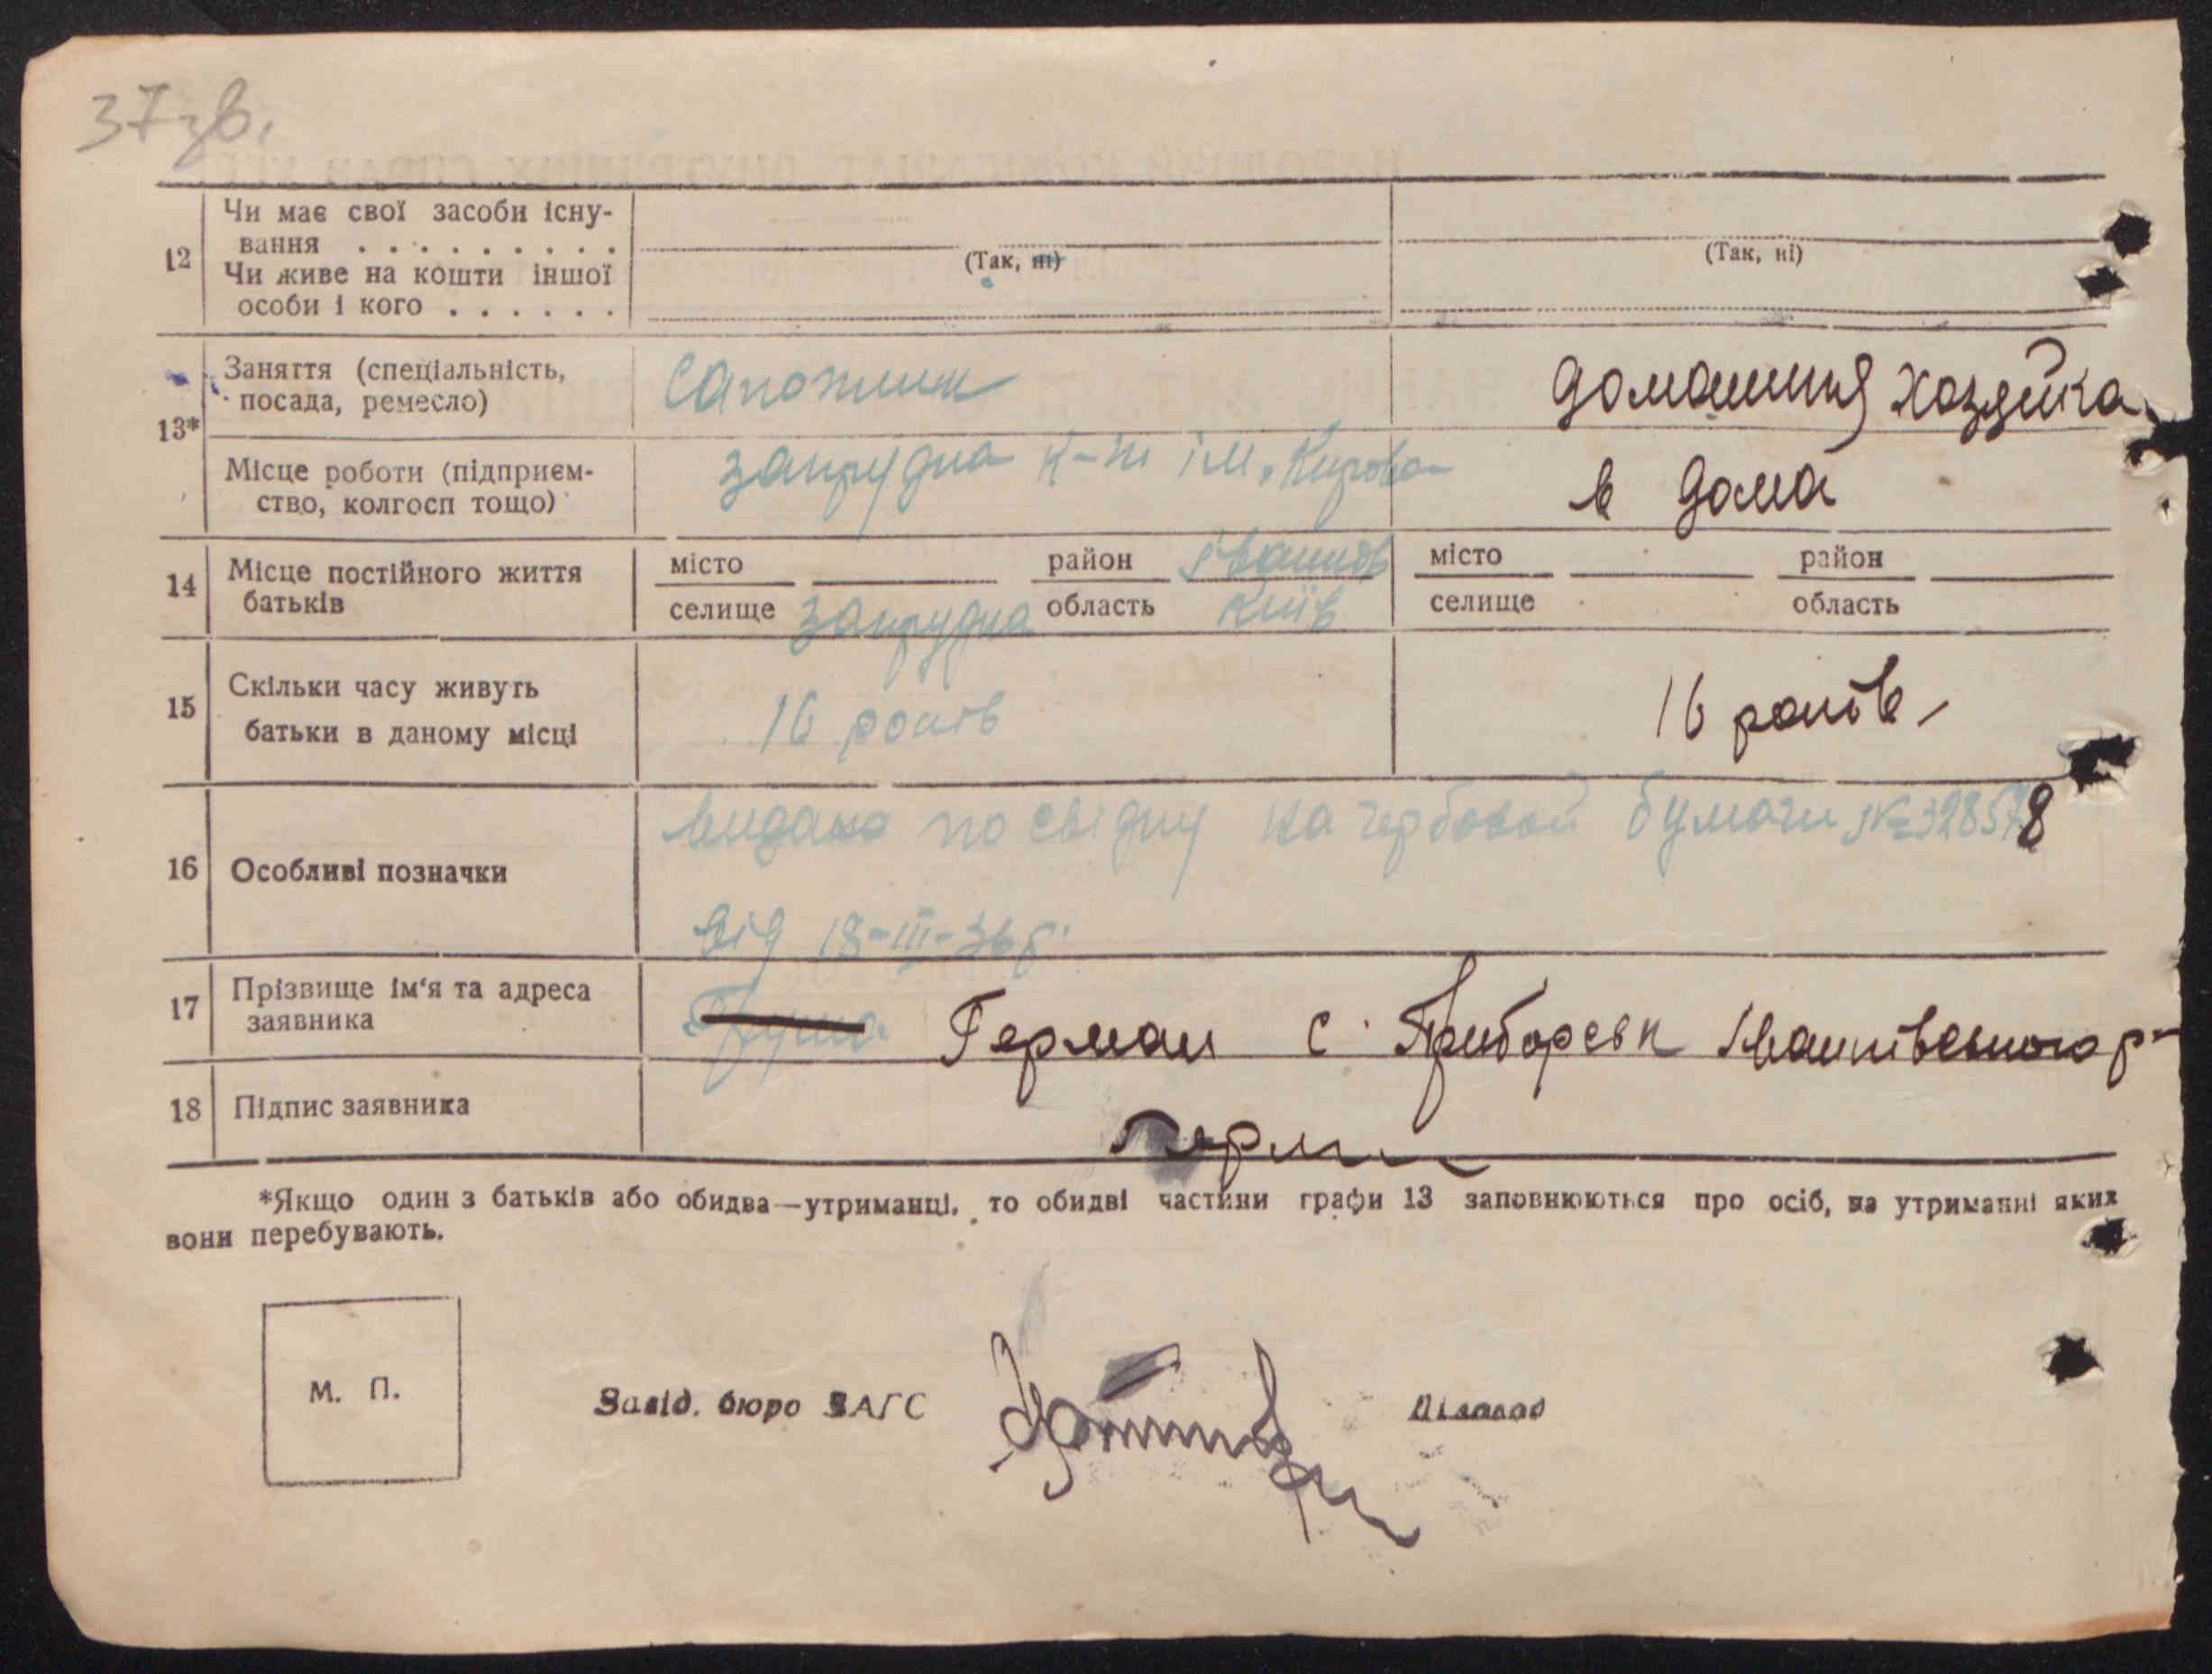 37 зв.
12 Чи має свої засоби існу-
вання . . . . . . . . .
(Так, ні)
(Так, ні)
Чи живе на кошти іншої
особи і кого . . . . . .
13* Заняття (спеціальність,
посада, ремесло)
сапожник
домашния хозяйка
Місце роботи (підприєм-
ство, колгосп тощо)
запрудка к-ш ім. Кирова
в дома
14 Місце постійного життя
батьків
місто район Іванків
селище запрудка область Київ
місто район
селище область
15 Скільки часу живуть
батьки в даному місці
16 років
16 років
16 Особливі позначки
видано по свідку на гербовой бумаги № 328578
від 18-III-36 р.
17 Прізвище ім‘я та адреса
заявника
Герман с. Приборськ Іванківського р-
18 Підпис заявника
Герман
*Якщо один з батьків або обидва—утриманці, то обидві частини графи 13 заповнюються про осіб, на утриманні яких
вони перебувають.
М. П.
Завід. бюро ЗАГС
Діловод